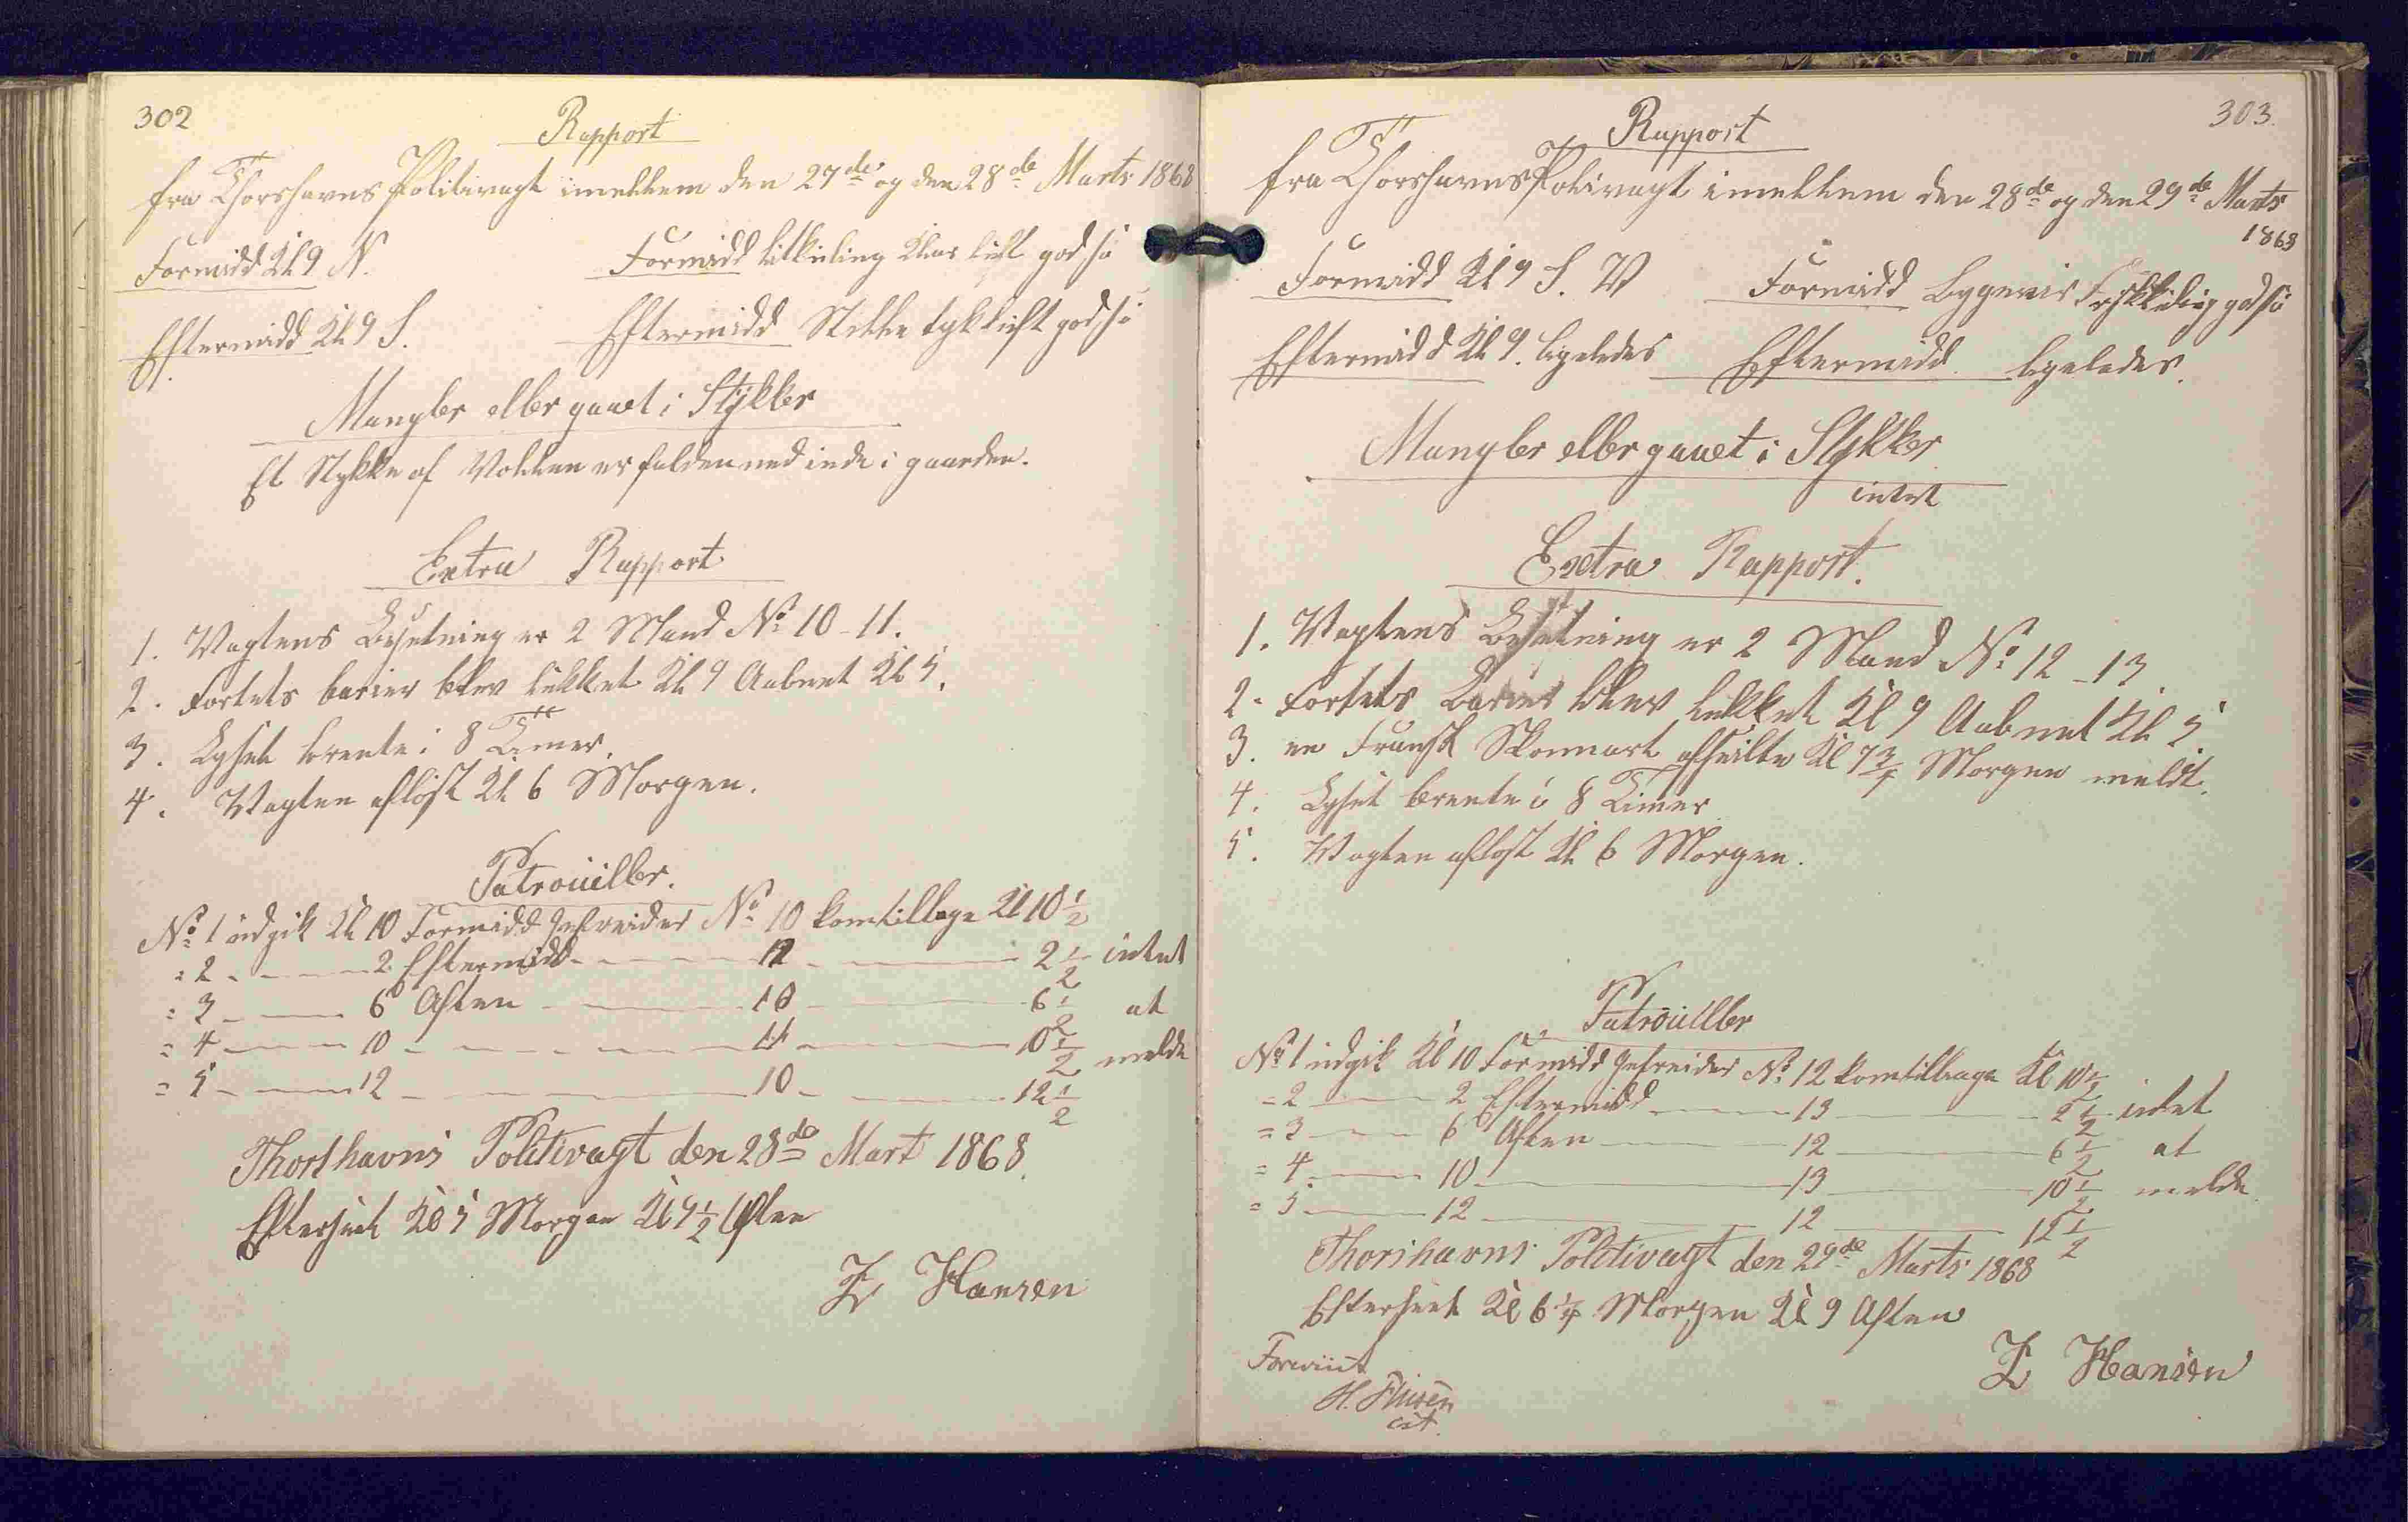 302
Rapport
fra Thorshavns Politivagt imellem den 27de og den 28de Marts 1868
Formidd Kl 9 N. Formidd litkuling Klar luft god sö
Eftermidd Kl 9 S. Eftermidd Stille tyk luft god sö
Mangler eller gaaet i Stÿkker
Et Stykke af Volden er falden ned inde i gaarden.
Extra Rapport
1. Vagtens Besetning er 2 Mand No 10-11.
2. Fortets barier blev lukket Kl 9 Aabnet Kl 5.
3. Lyset brente i 8 Timer.
4. Vagten aflöst Kl 6 Morgen.
Patrouiller.
No 1 udgik Kl 10 Formidd Gefreider No 10 kom tilbage Kl 10 1/2
= 2 - - - 2 Eftermidd - - - 11 - - - 2 1/2 intet
= 3 - - - 6 Aften - - - 10 - - - 6 1/2 at
= 4 - - - 10 - - - 11 - - - 10 1/2 melde
= 5 - - - 12 - - - 10 - - - 12 1/2
Thorshavns Politivagt den 28de Mart 1868.
Efterseet Kl 5 Morgen Kl 9 1/2 Aften
Z Hansen
303.
Rapport
fra Thorshavns Polivagt imellem den 28de og den 29de Marts
1868
Formidd Kl 9 S. V Formidd Bygevis god sö
Eftermidd Kl 9. ligeledes Eftermidd ligeledes.
Mangler eller gaaet i Stykker
intet
Extra Rapport.
1. Vagtens Besetning er 2 Mand No 12-13.
2. Fortets Barier blev lukket Kl 9 Aabnet Kl 5.
3. en Fransk Skonnart afseilte Kl 7 3/4 Morgen meldt.
4. Lyset brente i 8 Timer
5. Vagten aflöst Kl 6 Morgen.
Patrouiller
No 1 udgik Kl 10 Formidd Gefreider No 12 kom tilbage Kl 10 1/2
= 2 - - - 2 Eftermidd - - - 13 - - - 2 1/2 intet
= 3 - - - 6 Aften - - - 12 - - - 6 1/2 at
= 4 - - - 10 - - - 13 - - - 10 1/2 melde
= 5 - - - 12 - - - 12 - - - 12 1/2
Thorshavns Politivagt den 29de Marts 1868
Efterseet Kl 6 1/4 Morgen Kl 9 Aften
Z Hansen
Foreviist